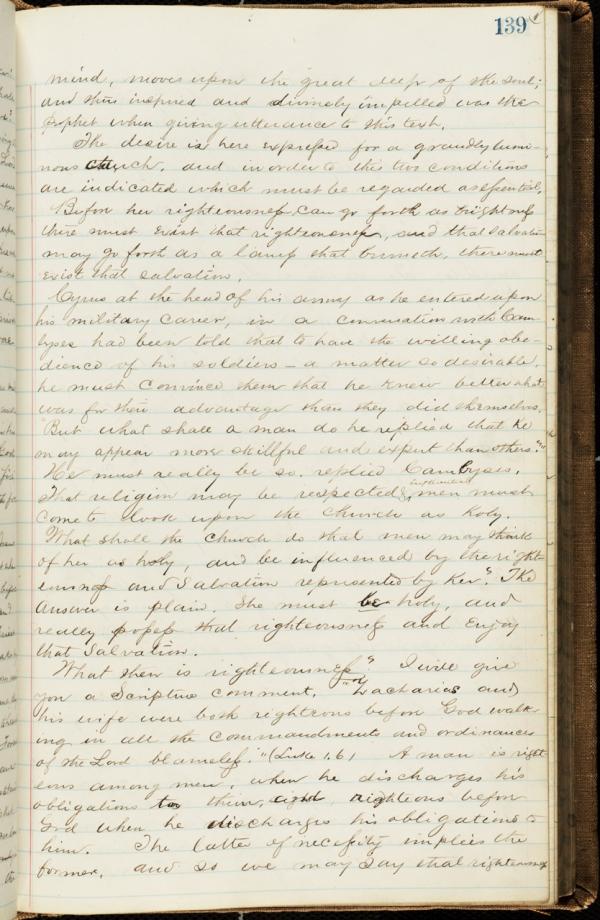 139
mind, moves upon the great deep of the soul;
and thus inspired and divinely impelled was the
Prophet when giving utterance to this text.
The desire is here expressed for a grandly lumi-
nous church, and in order to this two conditions
are indicated which must be regarded as essential.
Before her righteousness can go forth as brightness
there must exist that righteousness, and that salvation
may go forth as a lamp that burneth, there must
exist that salvation.
Cyrus at the head of his army as he entered upon
his military career, in a conversation with Cam-
byses had been told that to have the willing obe-
dience of his soldiers — a matter so desirable,
he must convince them that he knew better what
was for their advantage than they did themselves.
"But what shall a man do he replied that he
may appear more skillful and expert than others?"
He must really be so. replied Cambyses.
That religion may be respected & men must
come to look upon the Church as holy.
What shall the Church do that men may think
of her as holy, and be influenced by the right-
eousness and Salvation represented by her? The
answer is plain. She must be holy, and
really possess that righteousness and enjoy
that Salvation.
What then is righteousness? I will give
you a Scripture comment. Zacharias and
his wife were both righteous before God walk-
ing in all the commandments and ordinances
of the Lord blameless." (Luke 1.6) A man is right
eous among men, when he discharges his
obligations to them, and righteous before
God when he discharges his obligations to
him. The latter of necessity implies the
former, and so we may say that righteousness